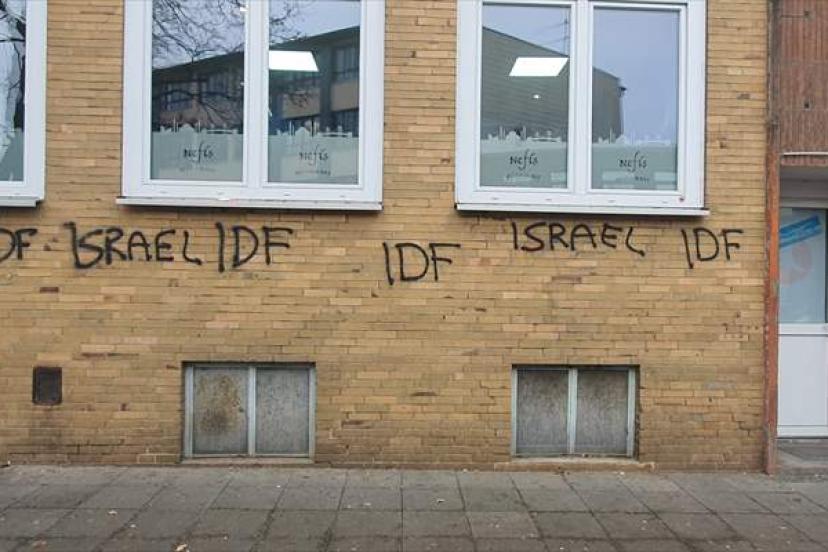 Nefis
Nefis
Nefis
Nefis
DF ISRAEL IDF IDF ISRAEL IDF